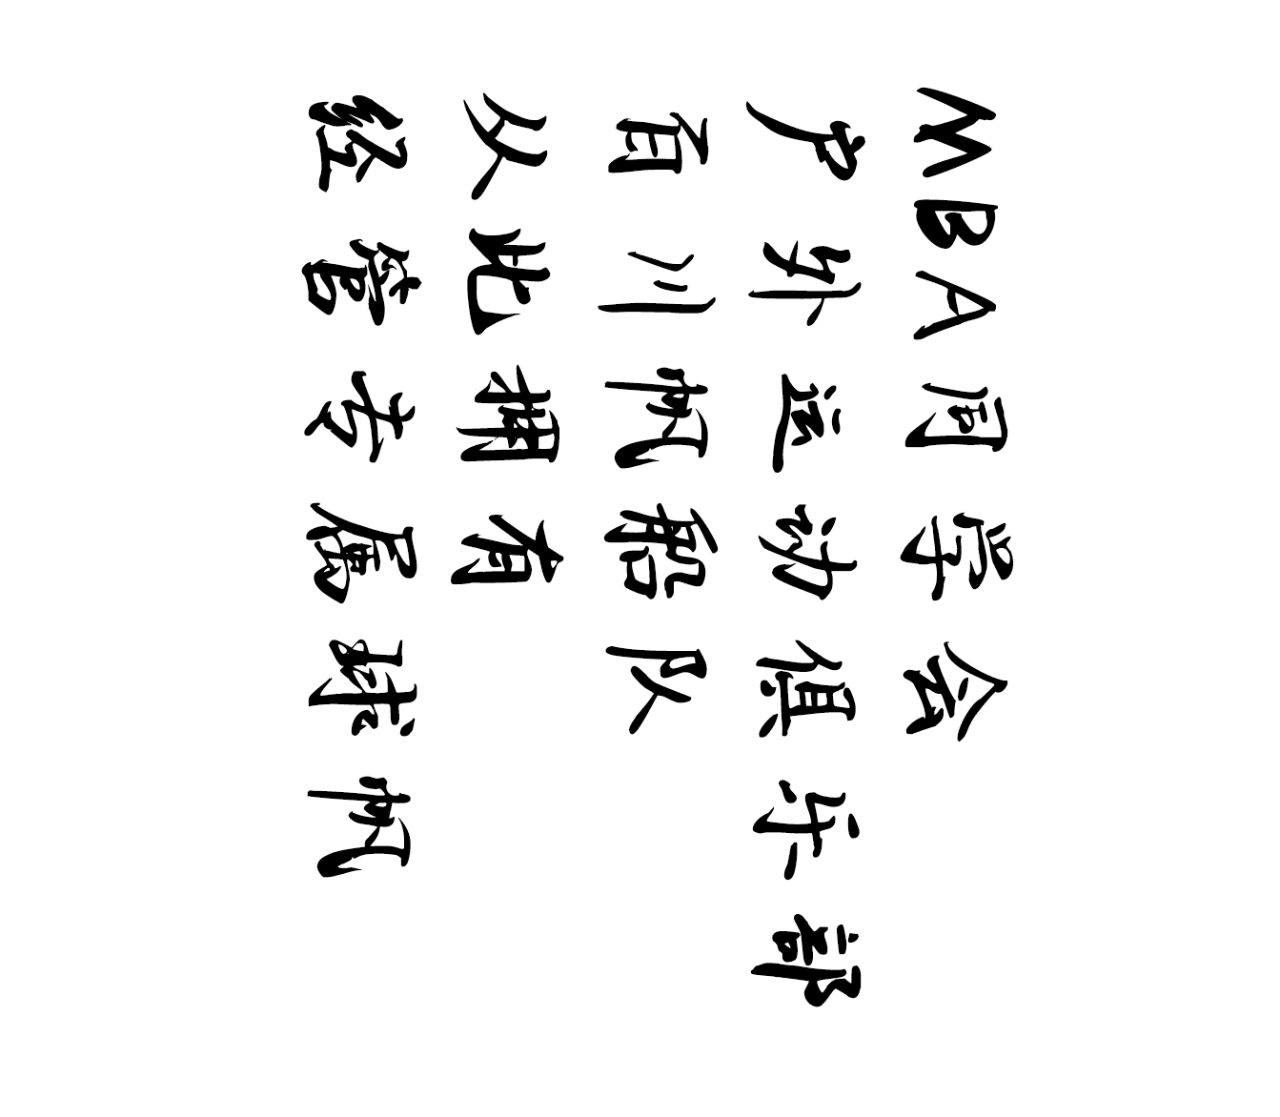 MBA同学会
户外运动俱乐部
百川帆船队
从此拥有
经管专属球帆